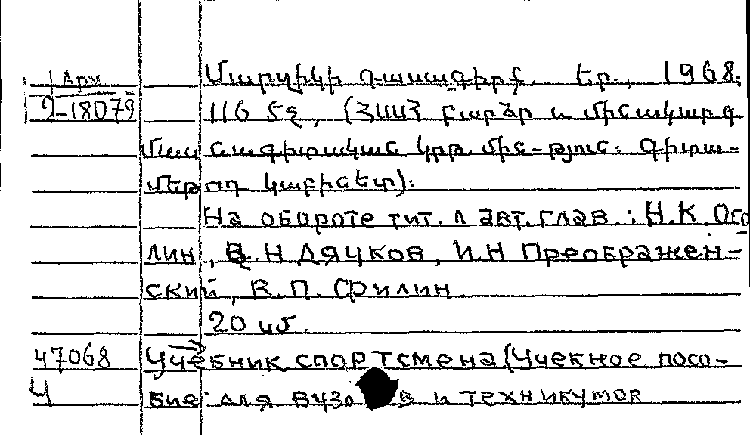 Արխ Մարզիկի դասագիրք. Եր., 1968.
9-18079 116 էջ, (ՀՍՍՀ բարձր և միջնակարգ
մասնագիտական կրթ. մին-թյուն: Գիտա-
մեթոդ կաբինետ):
На обороте тит. л авт. глав.: Н.К. Осо
лин, В.Н Дячков, И.Н Преображен-
ский, В.П. Филин
20 կո.
47068 Учебник спортсмена (Учебное посо-
Ч бие для вузов и техникумов